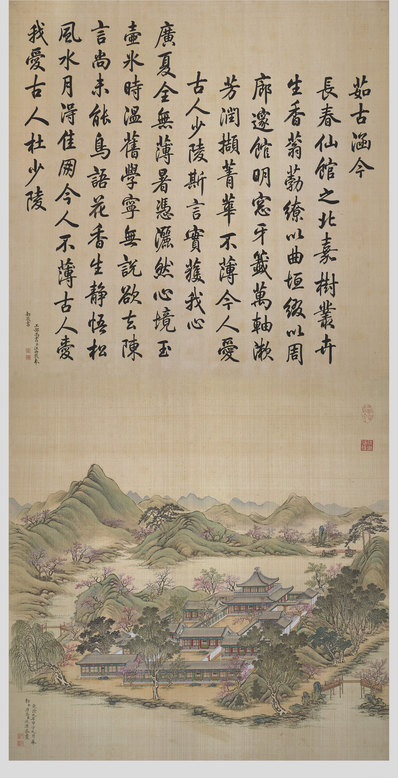 茹古涵今
長春仙館之北嘉樹叢卉
生香蓊葧繚以曲垣綴以周
廊邃館明窓牙籤萬軸漱
芳潤擷菁華不薄今人愛
古人少陵斯言實獲我心
廣夏全無薄暑憑灑然心境玉
壺氷時温舊學寧無說欲去陳
言尚未能鳥語花香生靜悟松
風水月淂佳朋今人不薄古人愛
我愛古人杜少陵